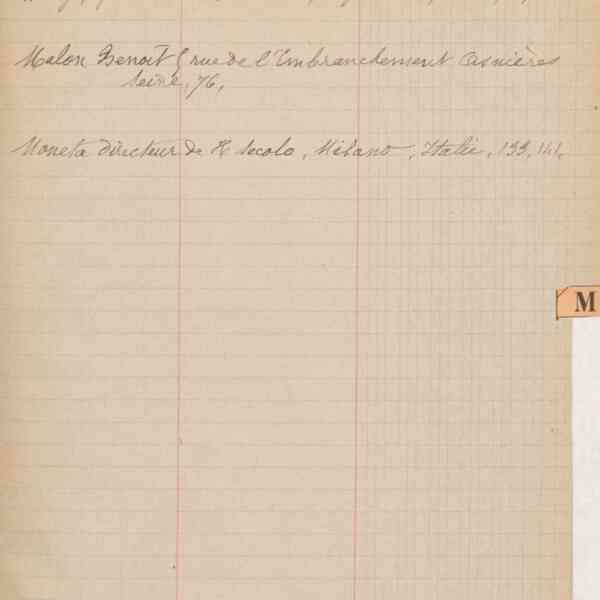 Malon Benoît 5 rue de l'Embranchement Asnières
Seine, 76,
Moneta directeur de Il Secolo, Milano, Italie, 133, 141,
M